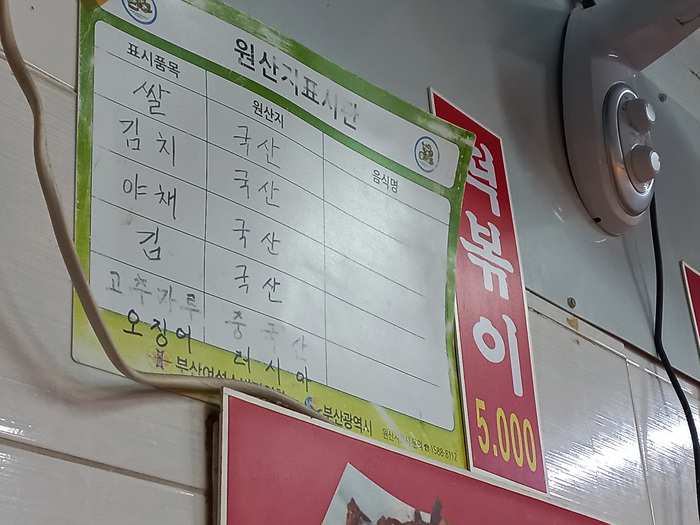 원산지표시판
표시품목 원산지 음식명
쌀 국산
김치 국산
야채 국산
김 국산
고추가루 중국산
오징어 러시아
부산광역시
원산지표시 문의 ☎ 1588-8112
볶이
5.000